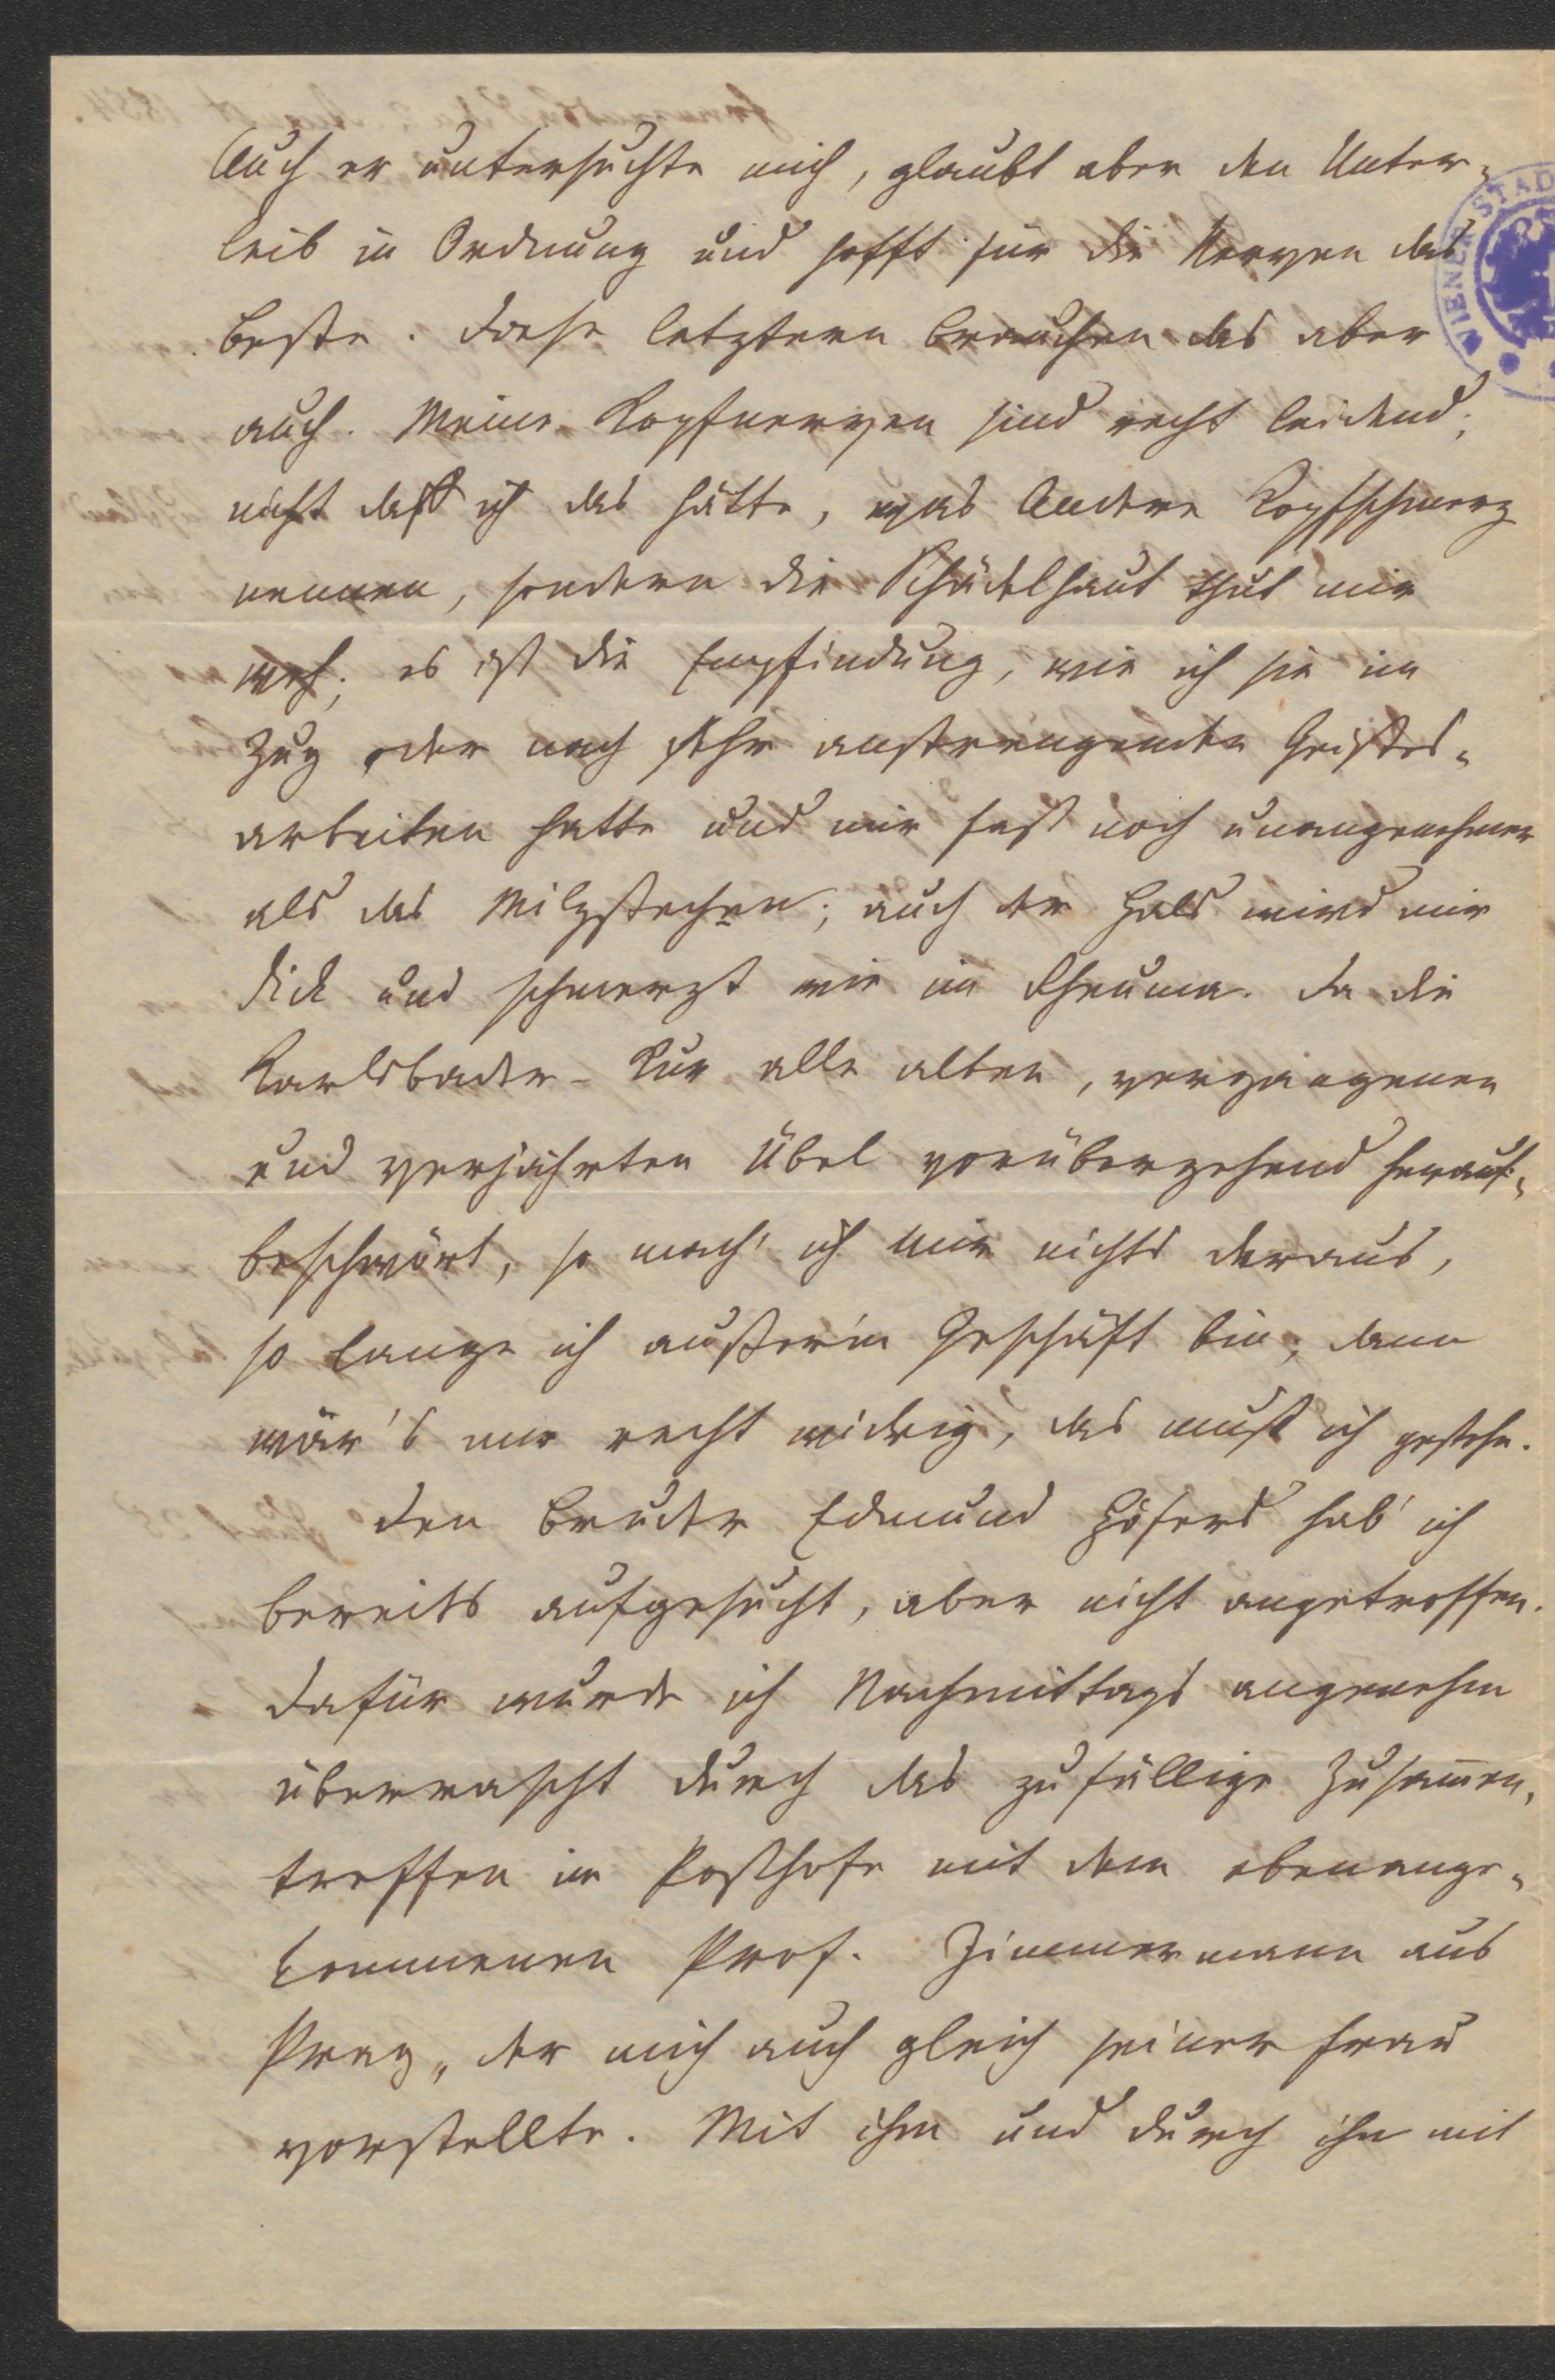 Auch er untersuchte mich, glaubt aber den Unter-
leib in Ordnung und hofft für die Nerven das
beste. Diese letztern brauchen das aber
auch. Meine Kopfnerven sind recht leidend;
nicht daß ich das hätte, was Andere Kopfschmerz
nennen, sondern die Schädelhaut thut mir
weh; es ist die Empfindung, wie ich sie im
Zug oder nach sehr anstrengenden Geistes-
arbeiten hatte und mir fast noch unangenehmer
als das Milzstechen; auch der Hals wird mir
dick und schmerzt wie im Rheuma. Da die
Karlsbader-Kur alle alten, vergangenen
und verjährten Übel vorübergehend herauf-
beschwört, so mach' ich mir nichts daraus,
so lange ich außer'm Geschäft bin; dann
wär's mir recht widrig, das muß ich gestehn.
Den Bruder Edmund Höfers hab' ich
bereits aufgesucht, aber nicht angetroffen.
Dafür wurde ich Nachmittags angenehm
überrascht durch das zufällige Zusam̄en-
treffen im Posthofe mit dem ebenange-
kommenen Prof. Zimmermann aus
Prag, der mich auch gleich seiner Frau
vorstellte. Mit ihm und durch ihn mit
WIENER STAD